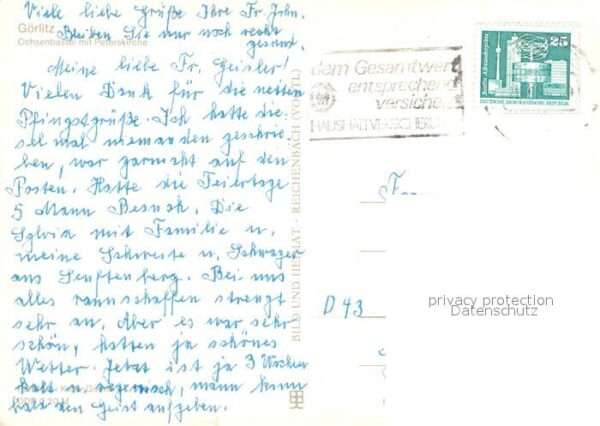 Viele liebe Grüße Ihre Fr. John.
Bleiben Sie nur noch recht
gesund.
Görlitz
Ochsenbastei mit Peterskirche
Meine liebe Fr. Geisler!
Vielen Dank für die netten
Pfingstgrüße. Ich hatte die-
sel mal niemanden geschrie-
ben, war garnicht auf den
Posten. Hatte die Feiertage
5 Mann Besuch. Die
Sylvia mit Familie u.
meine Schwester u. Schwager
aus Senftenberg. Bei uns
alles ranschaffen strengt
sehr an. Aber es war sehr
schön, hatten ja schönes
Wetter. Jetzt ist ja 3 Wochen
kalt u. regnerisch, mann kann
bald den Geist aufgeben.
BILD UND HEIMAT · REICHENBACH (VOGTL)
dem Gesamtwert
entsprechend
versichert
HAUSHALTVERSICHERUNG
25
DEUTSCHE DEMOKRATISCHE REPUBLIK
F
D 43
privacy protection
Datenschutz